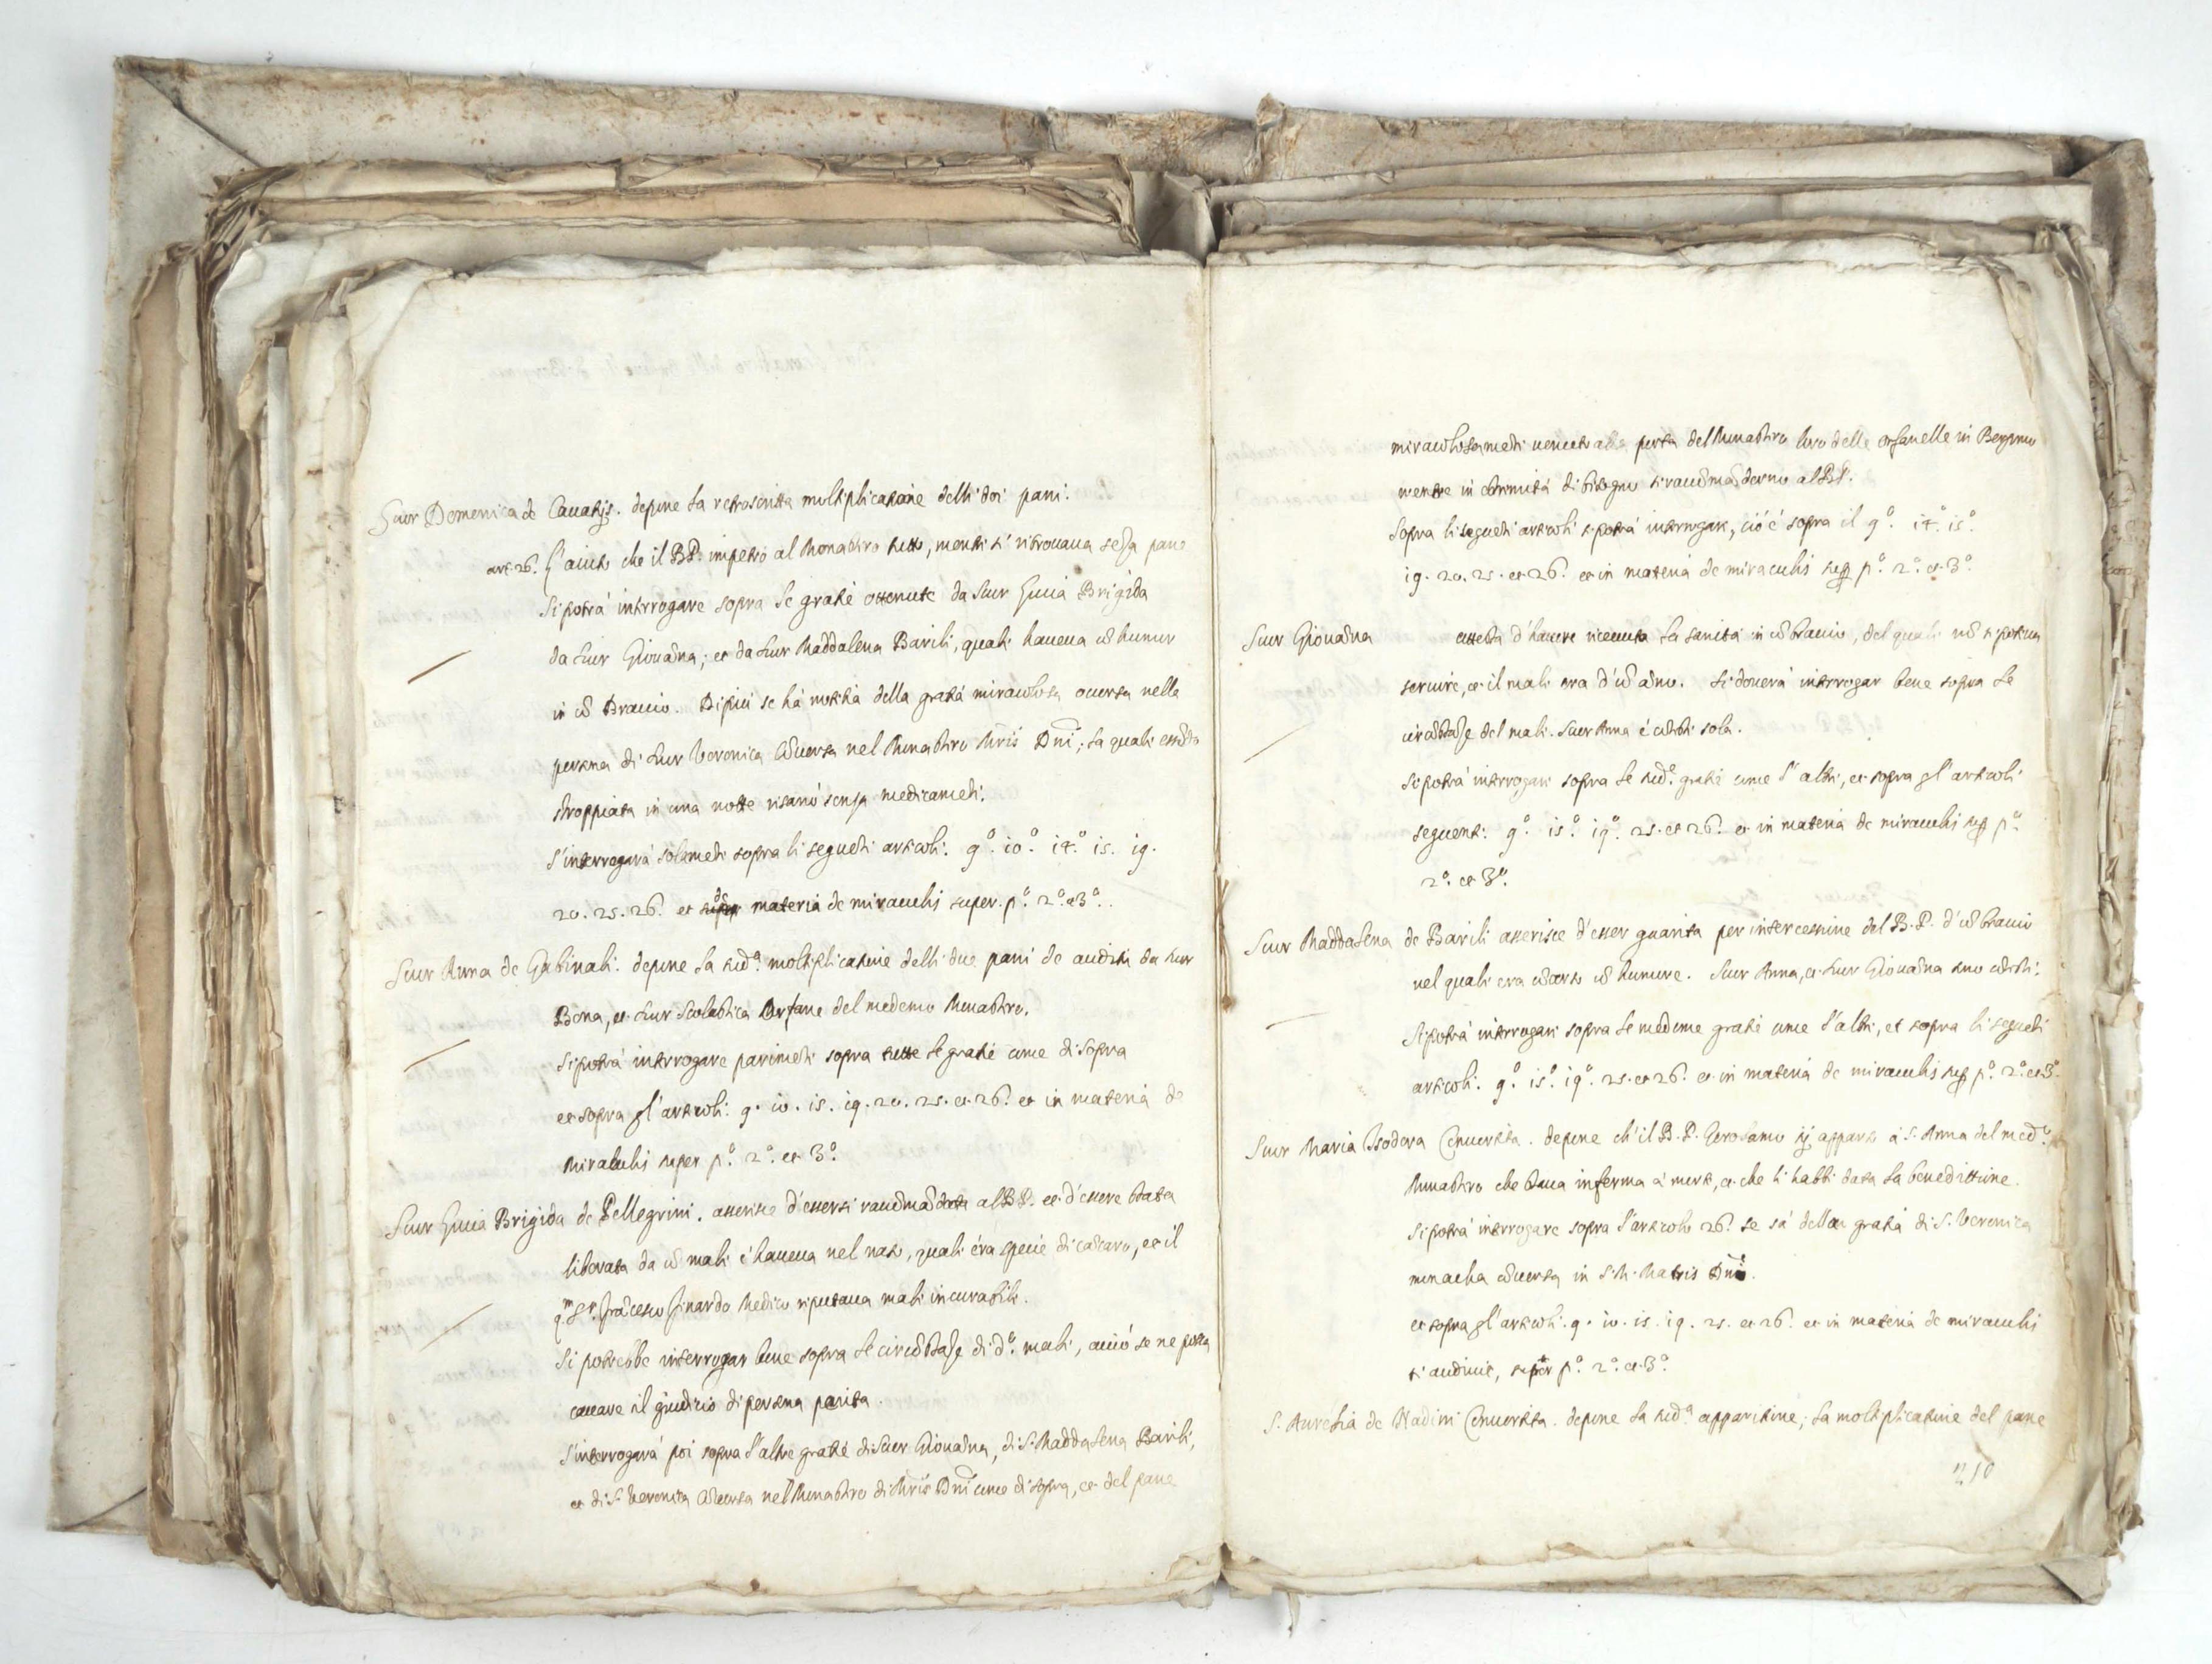 Suor Domenica de Cauatijs. depone la retroscritta moltiplicatione delli doi pani.
art. 26. L'aiuto che il B.P. impetrò al Monastro tutto, mentre si ritrouaua senza pane
Si potrà interrogare sopra le gratie ottenute da Suor Lucia Brigida
da Suor Giouãna; et da Suor Maddalena Barili, quale haueua uñ humor
in uñ Braccio. Di più se hà notitia della gratia miracolosa occorsa nella
persona di Suor Veronica Cõuersa nel Monastro Mris Dñi; la quale essẽdo
stroppiata in una notte risanò senza medicamẽti.
S'interrogarà solamẽte sopra li seguẽti articoli. 9.º 10.º 14.º 15. 19.
20. 25. 26. et de materia de miraculis super pº. 2º. et 3º.
Suor Anna de Gabinali. depone la sudª. moltiplicatione delli due pani de auditu da Suor
Bona, et Suor Scolastica Orfane del medemo Monastro.
Si potrà interrogare parimẽte sopra tutte le gratie come di sopra
et sopra gl'articoli. 9. 10. 15. 19. 20. 25. et 26. et in materia de
miraculis super pº. 2º. et 3º.
Suor Lucia Brigida de Pellegrini. asserisce d'essersi raccõmãdata al B.P. et d'essere stata
liberata da uñ male c'haueua nel naso, quale era specie di cãcaro, et il
qm Sr. Frãcesco Zinardo Medico riputaua male incurabile.
Si potrebbe interrogar bene sopra le circõstãze di dº. male, acciò se ne possa
cauare il giudicio di persona perita.
S'interrogarà poi sopra l'altre gratie di Suor Giouãna, di S. Maddalena Barili,
et di S. Veronica Cõuersa nel Monastro di Mris Dñi come di sopra, et del pane
miracolosamẽte uenuto alla porta del Monastro loro delle orfanelle in Bergomo
mentre in estremità di bisogno si raccõmãdorno al B.P.
Sopra li seguẽti articoli si potrà interrogare, cioè sopra il 9º. 14º. 15º.
19. 20. 25. et 26. et in materia de miraculis sup. pº. 2º. et 3º.
Suor Giouãna attesta d'hauere riceuuta la sanità in uñ braccio, del quale nõ si poteua
seruire, et il male era d'uñ anno. Si douerà interrogar bene sopra le
circõstãze del male. Suor Anna è cõteste sola.
Si potrà interrogare sopra le sudº. gratie come l'altre, et sopra gl'articoli
seguenti. 9º. 15º. 19º. 25. et 26. et in materia de miraculis sup. pº.
2º. et 3º.
Suor Maddalena de Barili asserisce d'esser guarita per intercessione del B.P. d'uñ braccio
nel quale era corso uñ humore. Suor Anna, et Suor Giouãna sono cõteste.
Si potrà interrogare sopra le medeme gratie come l'altre, et sopra li seguẽti
articoli. 9º. 15º. 19º. 25. et 26. et in materia de miraculis sup. pº. 2º. et 3º.
Suor Maria Isodora Conuertita. depone ch'il B.P. Gerolamo apparse à S. Anna del medº.
Monastro che staua inferma à morte, et che li habbi data la benedittione.
Si potrà interrogare sopra l'articolo 26. se sà della gratia di S. Veronica
monacha cõuersa in S. M. Matris Dñi.
et sopra gl'articoli. 9. 10. 15. 19. 25. et 26. et in materia de miraculis
super pº. 2º. et 3º.
S. Aurelia de Nadini Conuertita. depone la sudª. apparitione; la moltiplicatione del pane